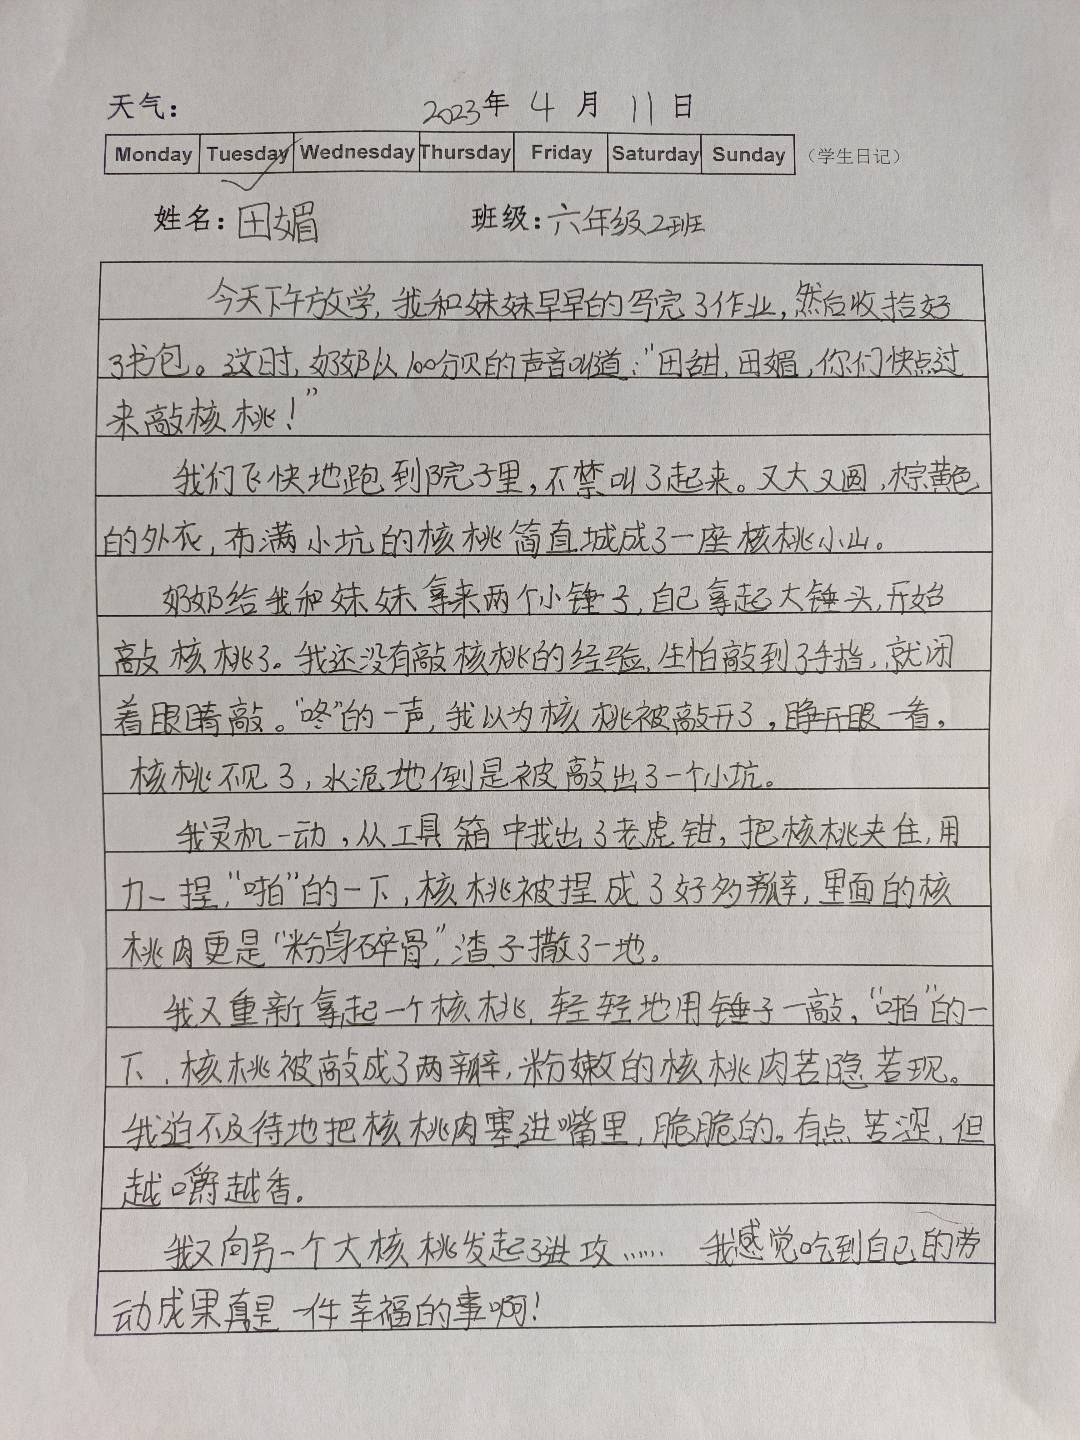 天气： 2023年 4 月 11 日
Monday Tuesday Wednesday Thursday Friday Saturday Sunday （学生日记）
姓名：田媚 班级：六年级2班
今天下午放学，我和妹妹早早的写完了作业，然后收拾好
了书包。这时，奶奶以100分贝的声音叫道："田甜，田媚，你们快点过
来敲核桃！"
我们飞快地跑到院子里，不禁叫了起来。又大又圆，棕黄色
的外衣，布满小坑的核桃简直城成了一座核桃小山。
奶奶给我和妹妹拿来两个小锤子，自己拿起大锤头，开始
敲核桃了。我还没有敲核桃的经验，生怕敲到了手指，就闭
着眼睛敲。"咚"的一声，我以为核桃被敲开了，睁开眼一看，
核桃不见了，水泥地倒是被敲出了一个小坑。
我灵机一动，从工具箱中找出了老虎钳，把核桃夹住，用
力一捏，"啪"的一下，核桃被捏成了好多瓣，里面的核
桃肉更是"粉身碎骨"，渣子撒了一地。
我又重新拿起一个核桃，轻轻地用锤子一敲，"啪"的一
下，核桃被敲成了两瓣，粉嫩的核桃肉若隐若现。
我迫不及待地把核桃肉塞进嘴里，脆脆的。有点苦涩，但
越嚼越香。
我又向另一个大核桃发起了进攻…… 我感觉吃到自己的劳
动成果真是一件幸福的事啊！